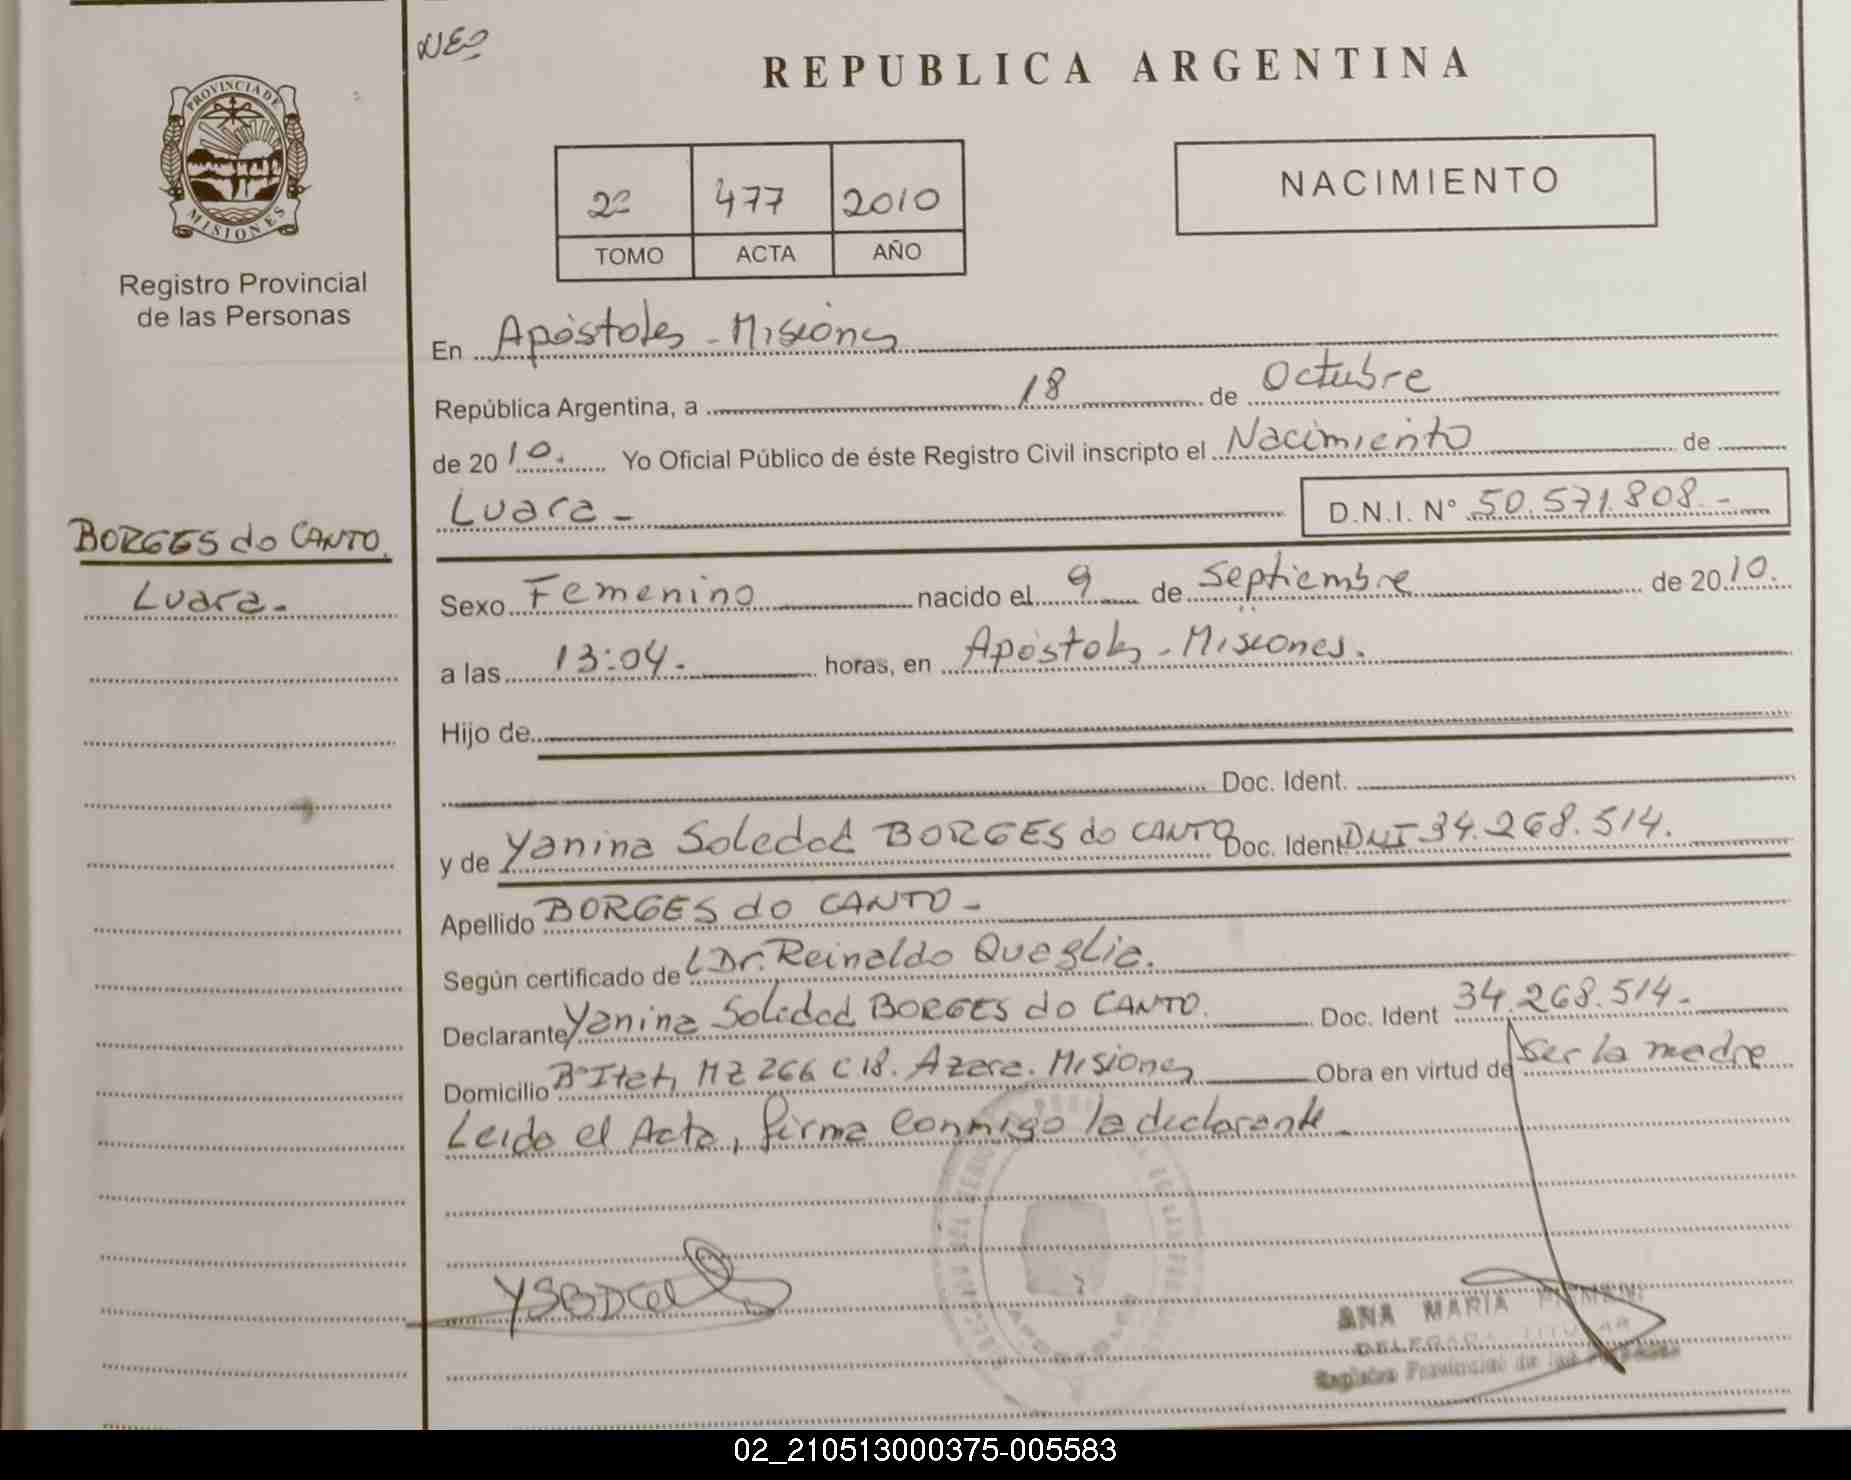 REPUBLICA ARGENTINA
PROVINCIA DE
MISIONES
Registro Provincial
de las Personas
2º 477 2010
TOMO ACTA AÑO
NACIMIENTO
En Apóstoles - Misiones
República Argentina, a 18 de Octubre
de 2010. Yo Oficial Público de éste Registro Civil inscripto el Nacimiento de
Luara - D.N.I. N° 50.571.808.-
BORGES do CANTO
Luara.-
Sexo Femenino nacido el 9 de Septiembre de 2010.
a las 13:04. horas, en Apóstoles - Misiones.
Hijo de
Doc. Ident.
y de Yanina Soledad BORGES do CANTO Doc. Ident DNI 34.268.514.
Apellido BORGES do CANTO -
Según certificado de Dr. Reinaldo
Declarante Yanina Soledad BORGES do CANTO. Doc. Ident 34.268.514.-
Domicilio MZ 266 C 18. Azara. Misiones Obra en virtud de ser la madre
Leido el Acta, firma conmigo la declarante.
ANA MARIA
Registro Provincial de las
02_210513000375-005583